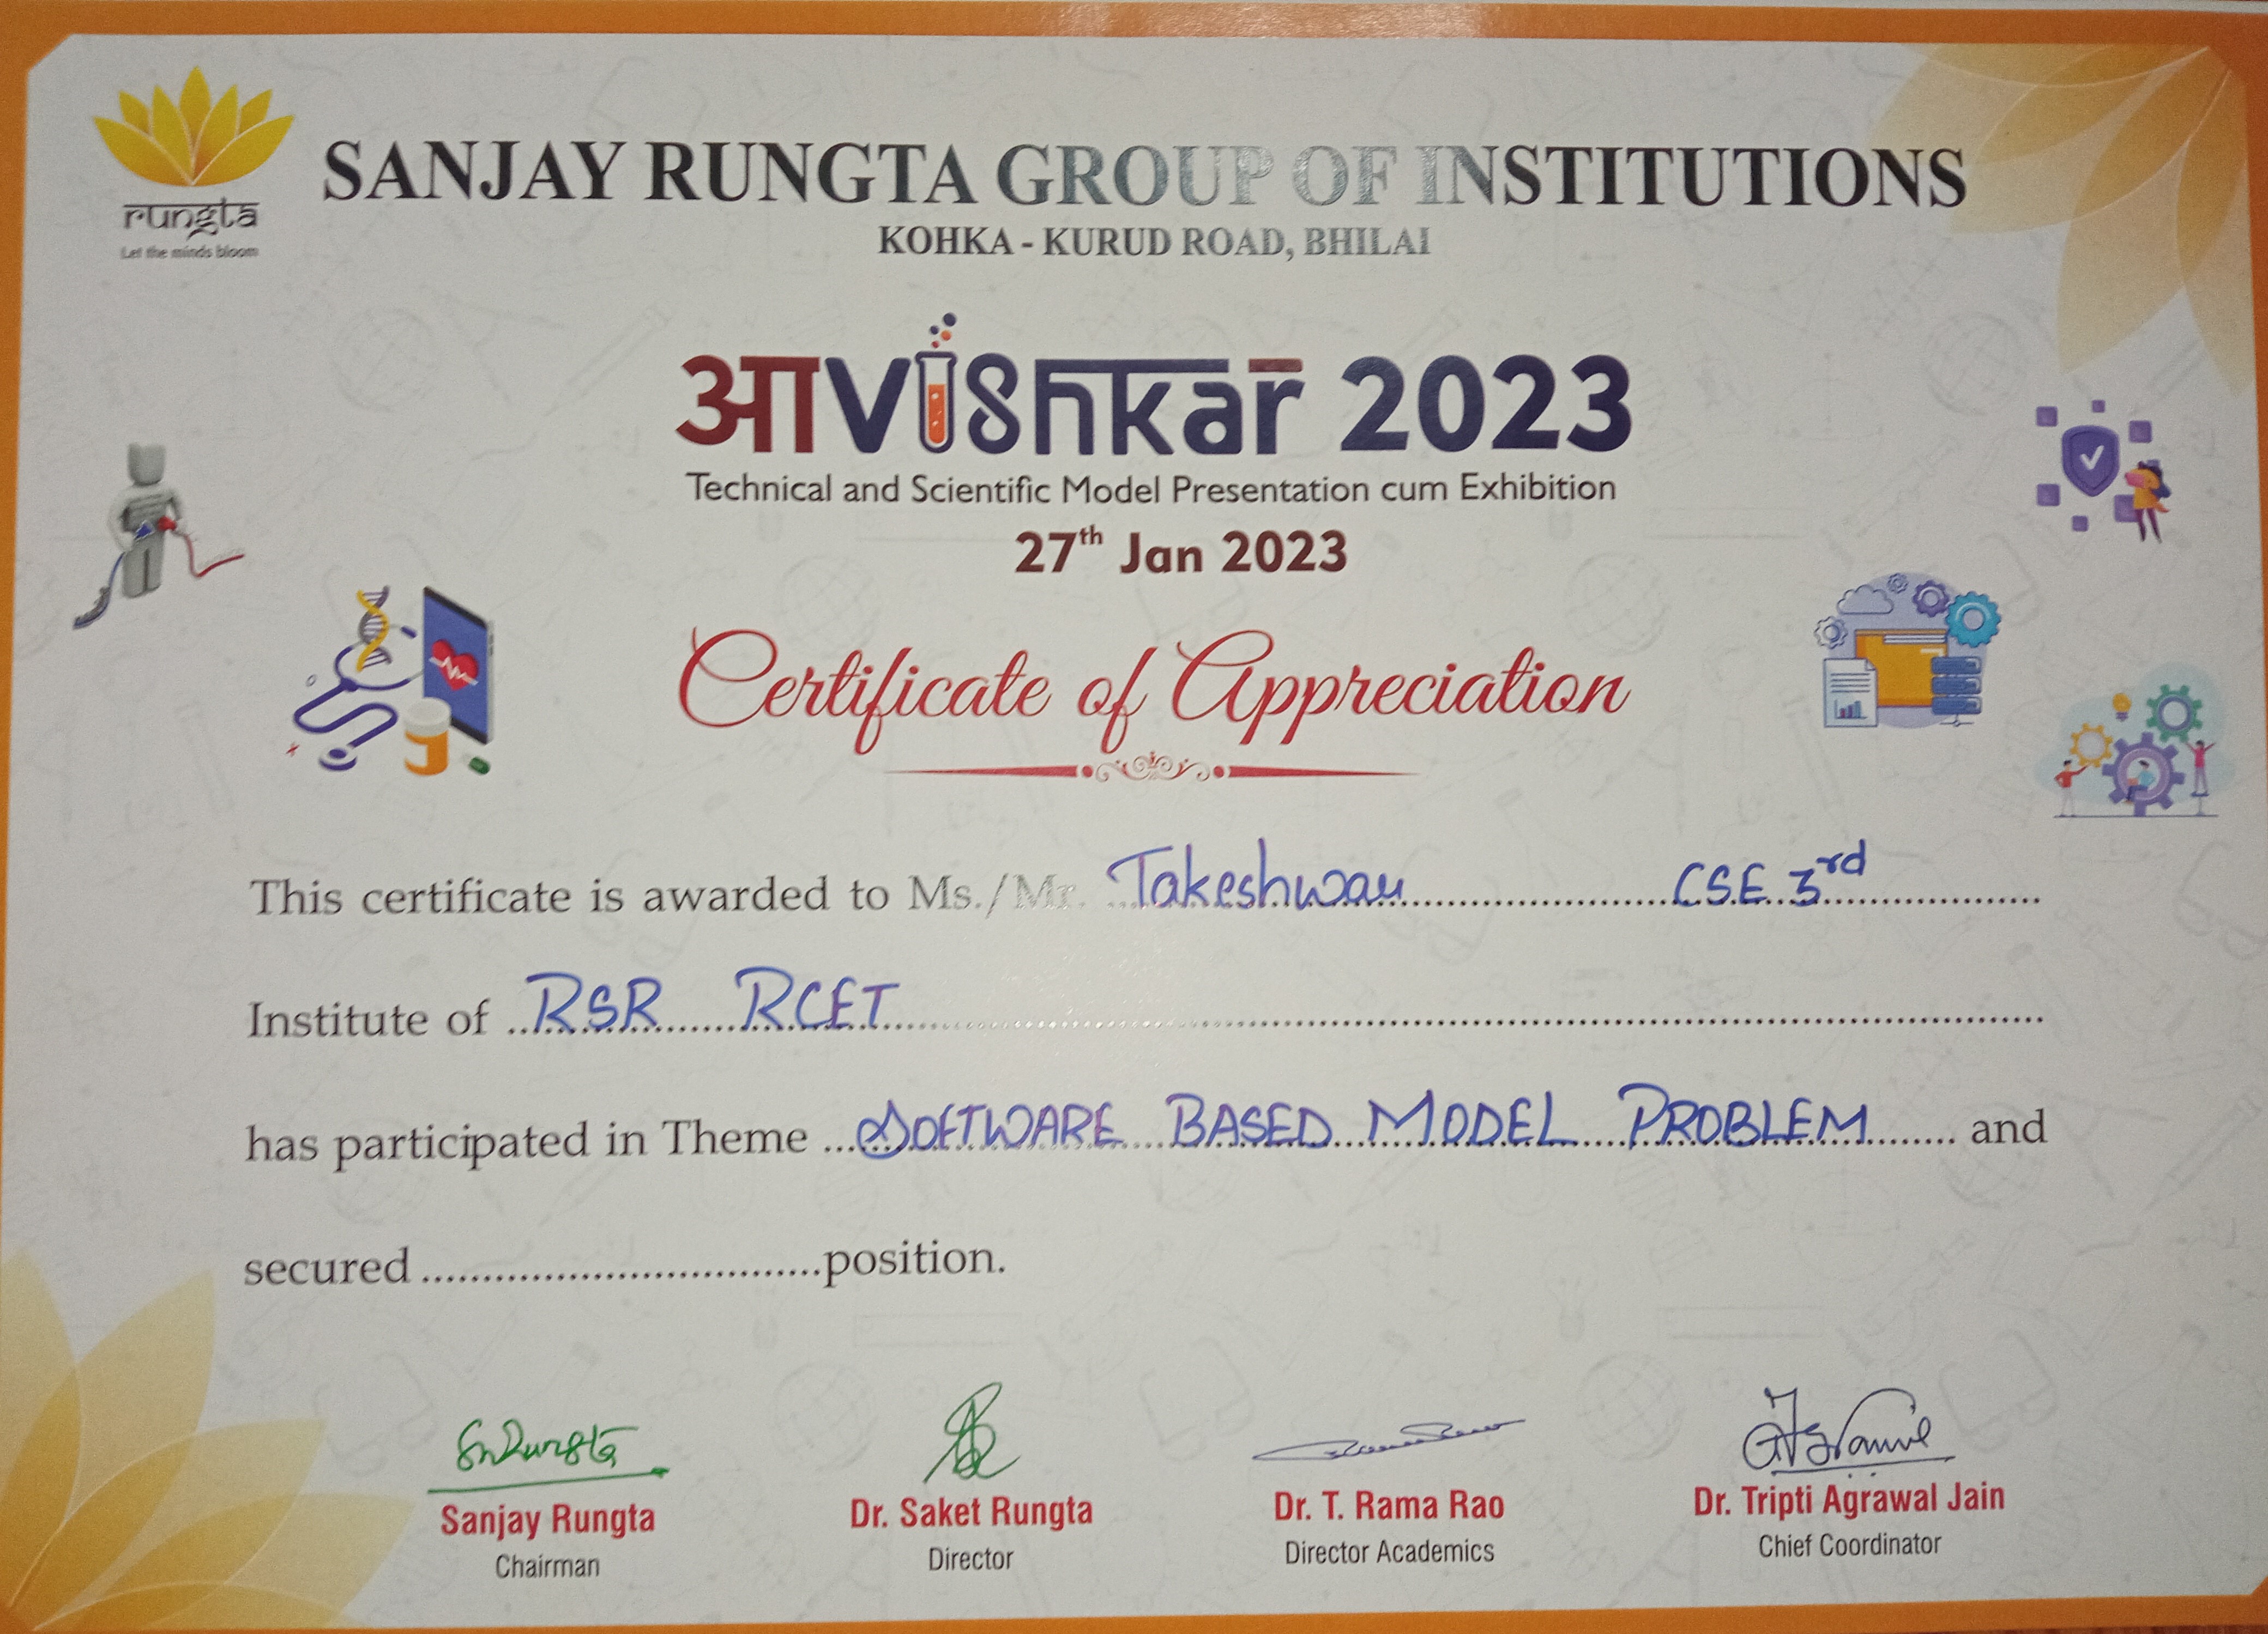 rungta
Let the minds bloom
SANJAY RUNGTA GROUP OF INSTITUTIONS
KOHKA - KURUD ROAD, BHILAI
आvishkar 2023
Technical and Scientific Model Presentation cum Exhibition
27th Jan 2023
Certificate of Appreciation
This certificate is awarded to Ms./Mr. Takeshwar CSE 3rd
Institute of RSR RCET
has participated in Theme SOFTWARE BASED MODEL PROBLEM and
secured ................................. position.
Sanjay Rungta Dr. Saket Rungta Dr. T. Rama Rao Dr. Tripti Agrawal Jain
Chairman Director Director Academics Chief Coordinator